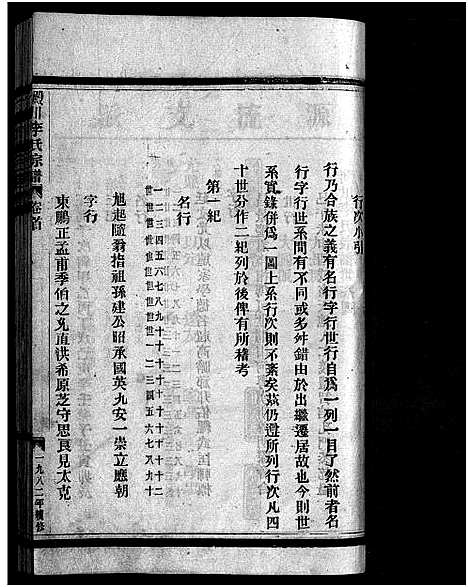 行次小引
行乃合族之義有名行字行世行自爲一列一目了然前者名
行字行世系間有不同或多舛錯由於出繼遷居故也今則世
系實錄併爲一圖上系行次則不紊矣茲仍遵所列行次凡四
十世分作二紀列於後俾有所稽考
第一紀
一世 二世 三世 四世 五世 六世 七世 八世 九世 十世 十一世 十二 十三 十四 十五 十六 十七 十八 十九 二十
名行
旭起隨翁指祖孫建公昭承國英九安一崇立應朝
字行
東鵬正孟甫季伯之克直洪希原芝守思良見太克
川李氏宗譜
卷首
一九八二年續修